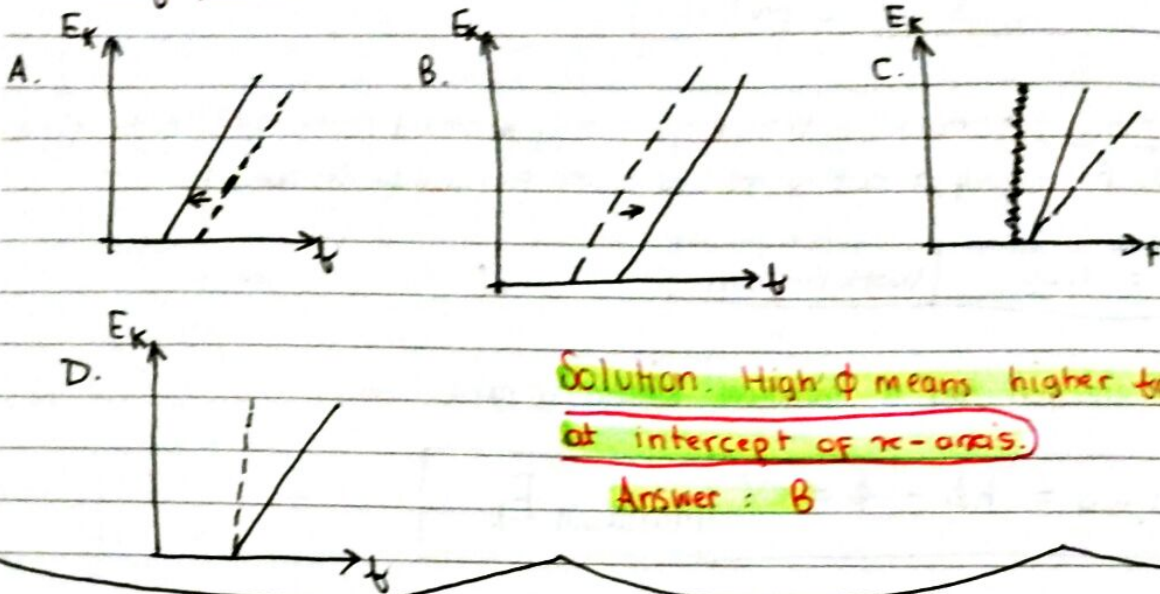 Eк Eк Eк
A. B. C.
f f F
Eк
D.
f
Solution. High ϕ means higher fo
at intercept of x-axis.
Answer : B